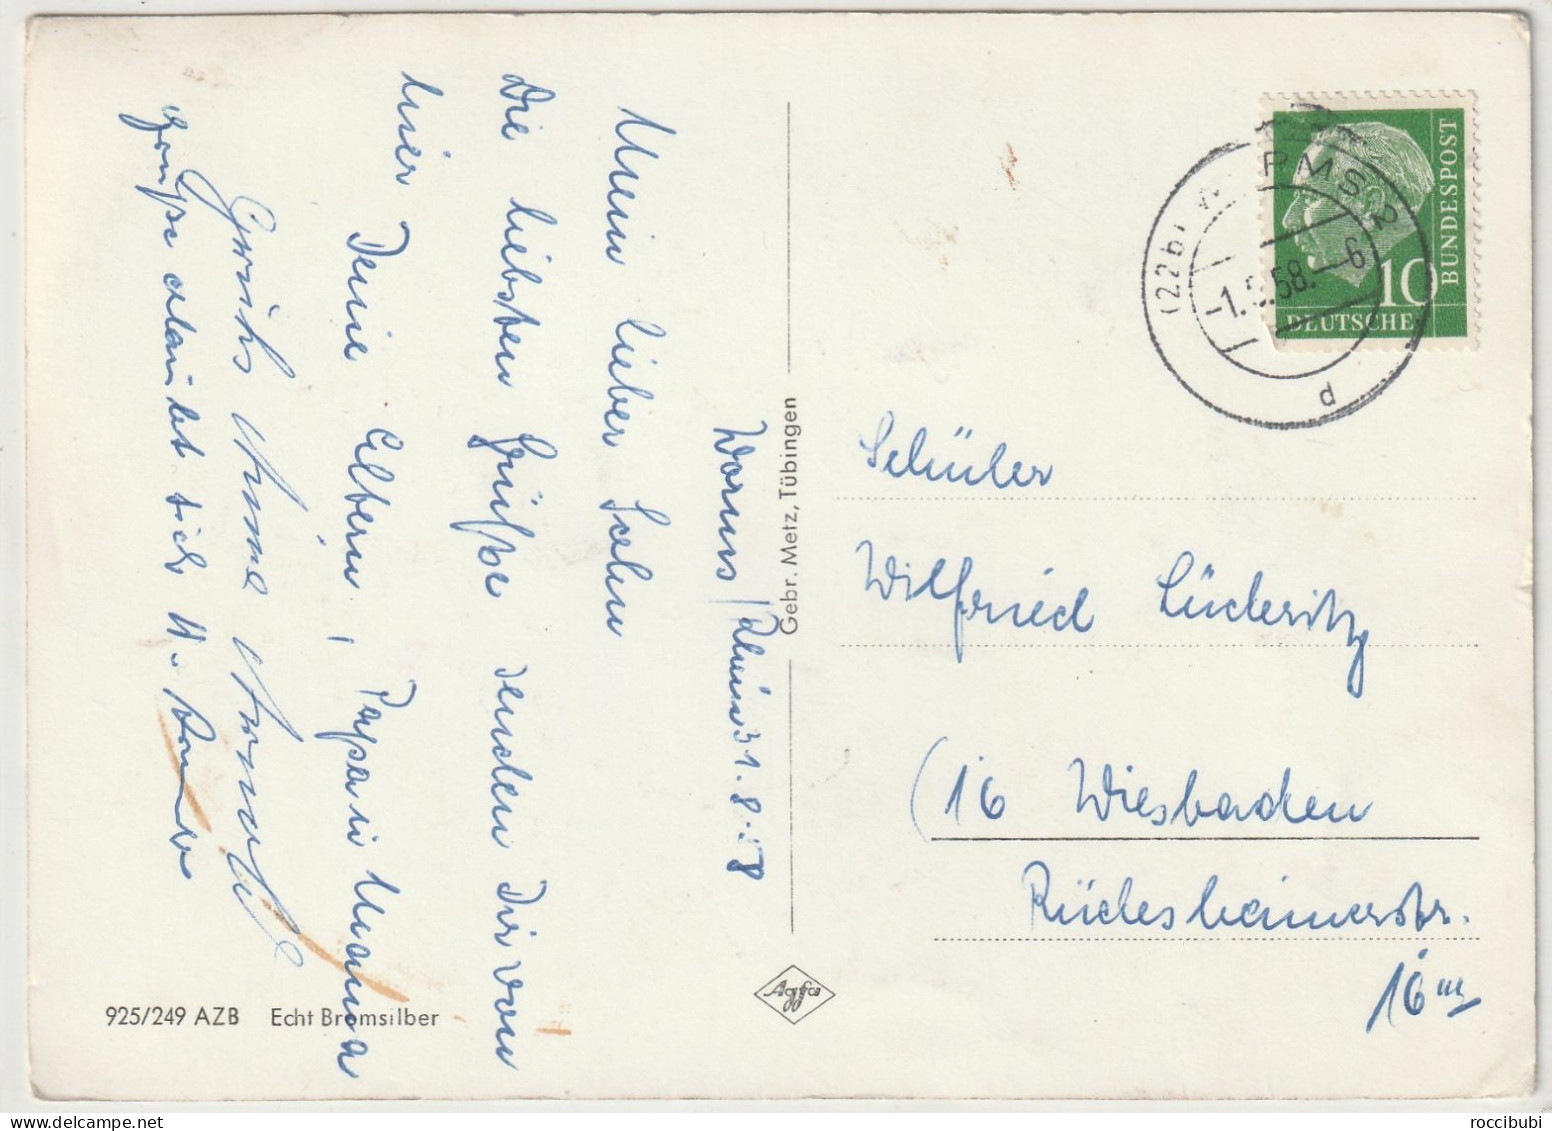 Worms/Rhein 31.8.58
Mein lieber Sohn
Die liebsten Grüße senden Dir von
hier Deine Eltern, Papa u Mama
Anne
Grüße sich
Schüler
Wilfried Lüderitz
(16 Wiesbaden
Rüdesheimerstr.
16 III
DEUTSCHE
BUNDESPOST
10
(22b) W RMS 2
-1. .58.-6
d
Gebr. Metz, Tübingen
Agfa
925/249 AZB Echt Bromsilber
roccibubi